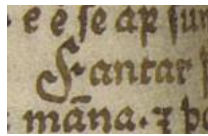 e e se ap sun
Fantar
mãna. ⁊ po